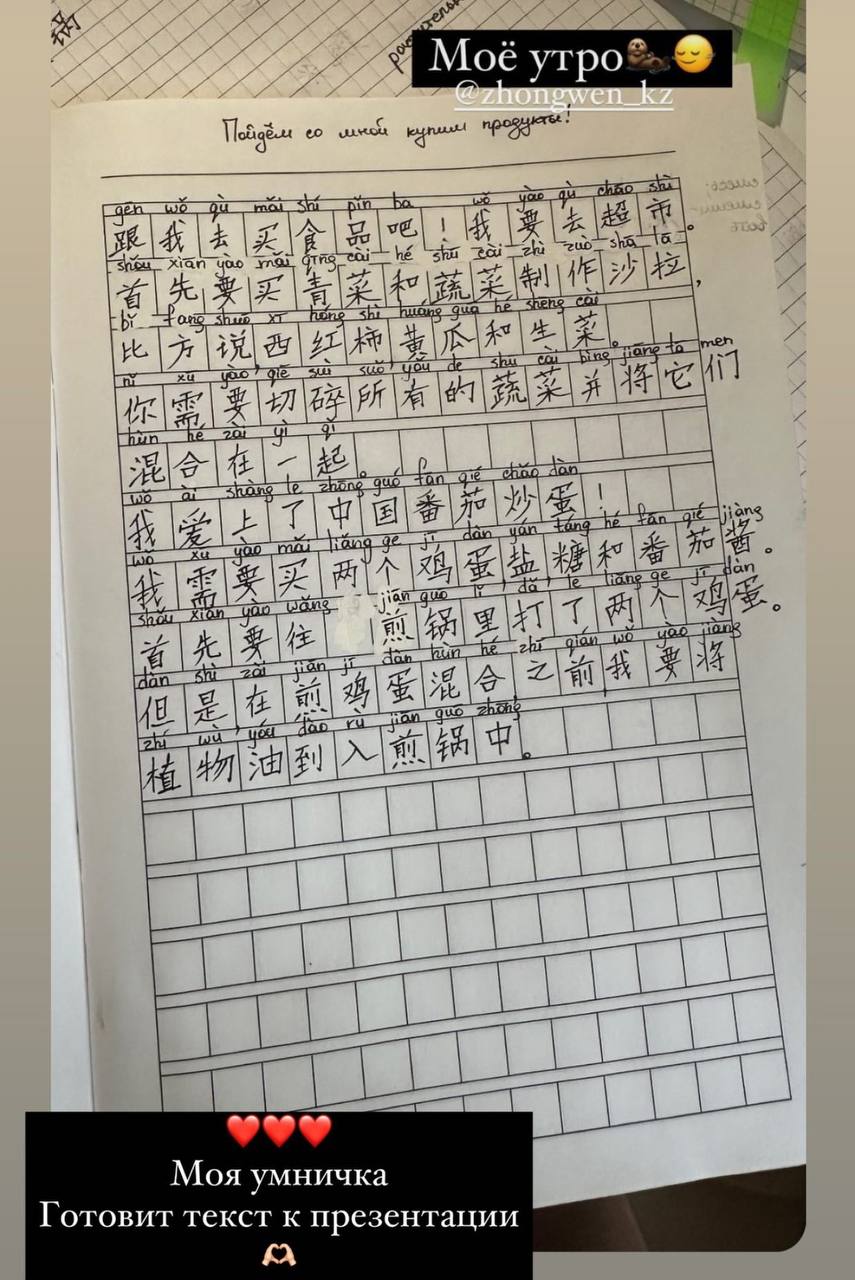 Моё утро🦦😌
@zhongwen_kz
Пойдём со мной купим продукты!
gēn wǒ qù mǎi shí pǐn ba wǒ yào qù chāo shì
跟我去买食品吧！我要去超市。
shǒu xiān yào mǎi qīng cài hé shū cài zhì zuò shā lā
首先要买青菜和蔬菜制作沙拉，
bǐ fang shuō xī hóng shì huáng guā hé shēng cài
比方说，西红柿，黄瓜和生菜。
nǐ xū yào qiē suì suǒ yǒu de shū cài bìng jiāng tā men
你需要切碎所有的蔬菜并将它们
hùn hé zài yì qǐ
混合在一起。
wǒ ài shàng le zhōng guó fān qié chǎo dàn
我爱上了中国番茄炒蛋！
wǒ xū yào mǎi liǎng ge jī dàn yán táng hé fān qié jiàng
我需要买两个鸡蛋盐糖和番茄酱。
shǒu xiān yào wǎng jiān guō lǐ dǎ le liǎng ge jī dàn
首先要往煎锅里打了两个鸡蛋。
dàn shì zài jiān jī dàn hùn hé zhī qián wǒ yào jiàng
但是在煎鸡蛋混合之前，我要将
zhí wù yóu dào rù jiān guō zhōng
植物油到入煎锅中。
❤️❤️❤️
Моя умничка
Готовит текст к презентации
🫶🏻